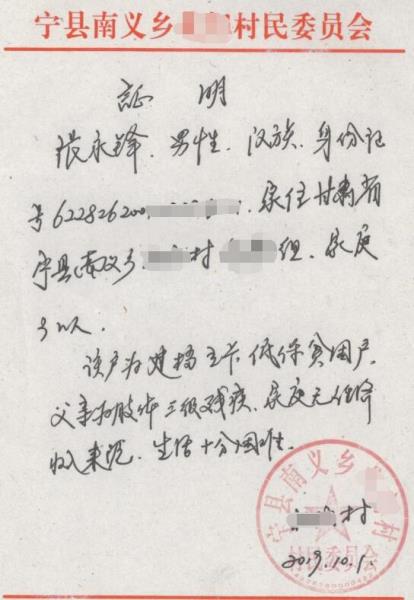 宁县南义乡村民委员会
证 明
张永锋，男性，汉族，身份证
号622826200，家住甘肃省
宁县南义乡村组，家庭
5口人。
该户为建档立卡低保贫困户，
父亲为肢体三级残疾，家庭无任何
收入来源，生活十分困难。
村
2019.10.1.
宁县南义乡村
村民委员会